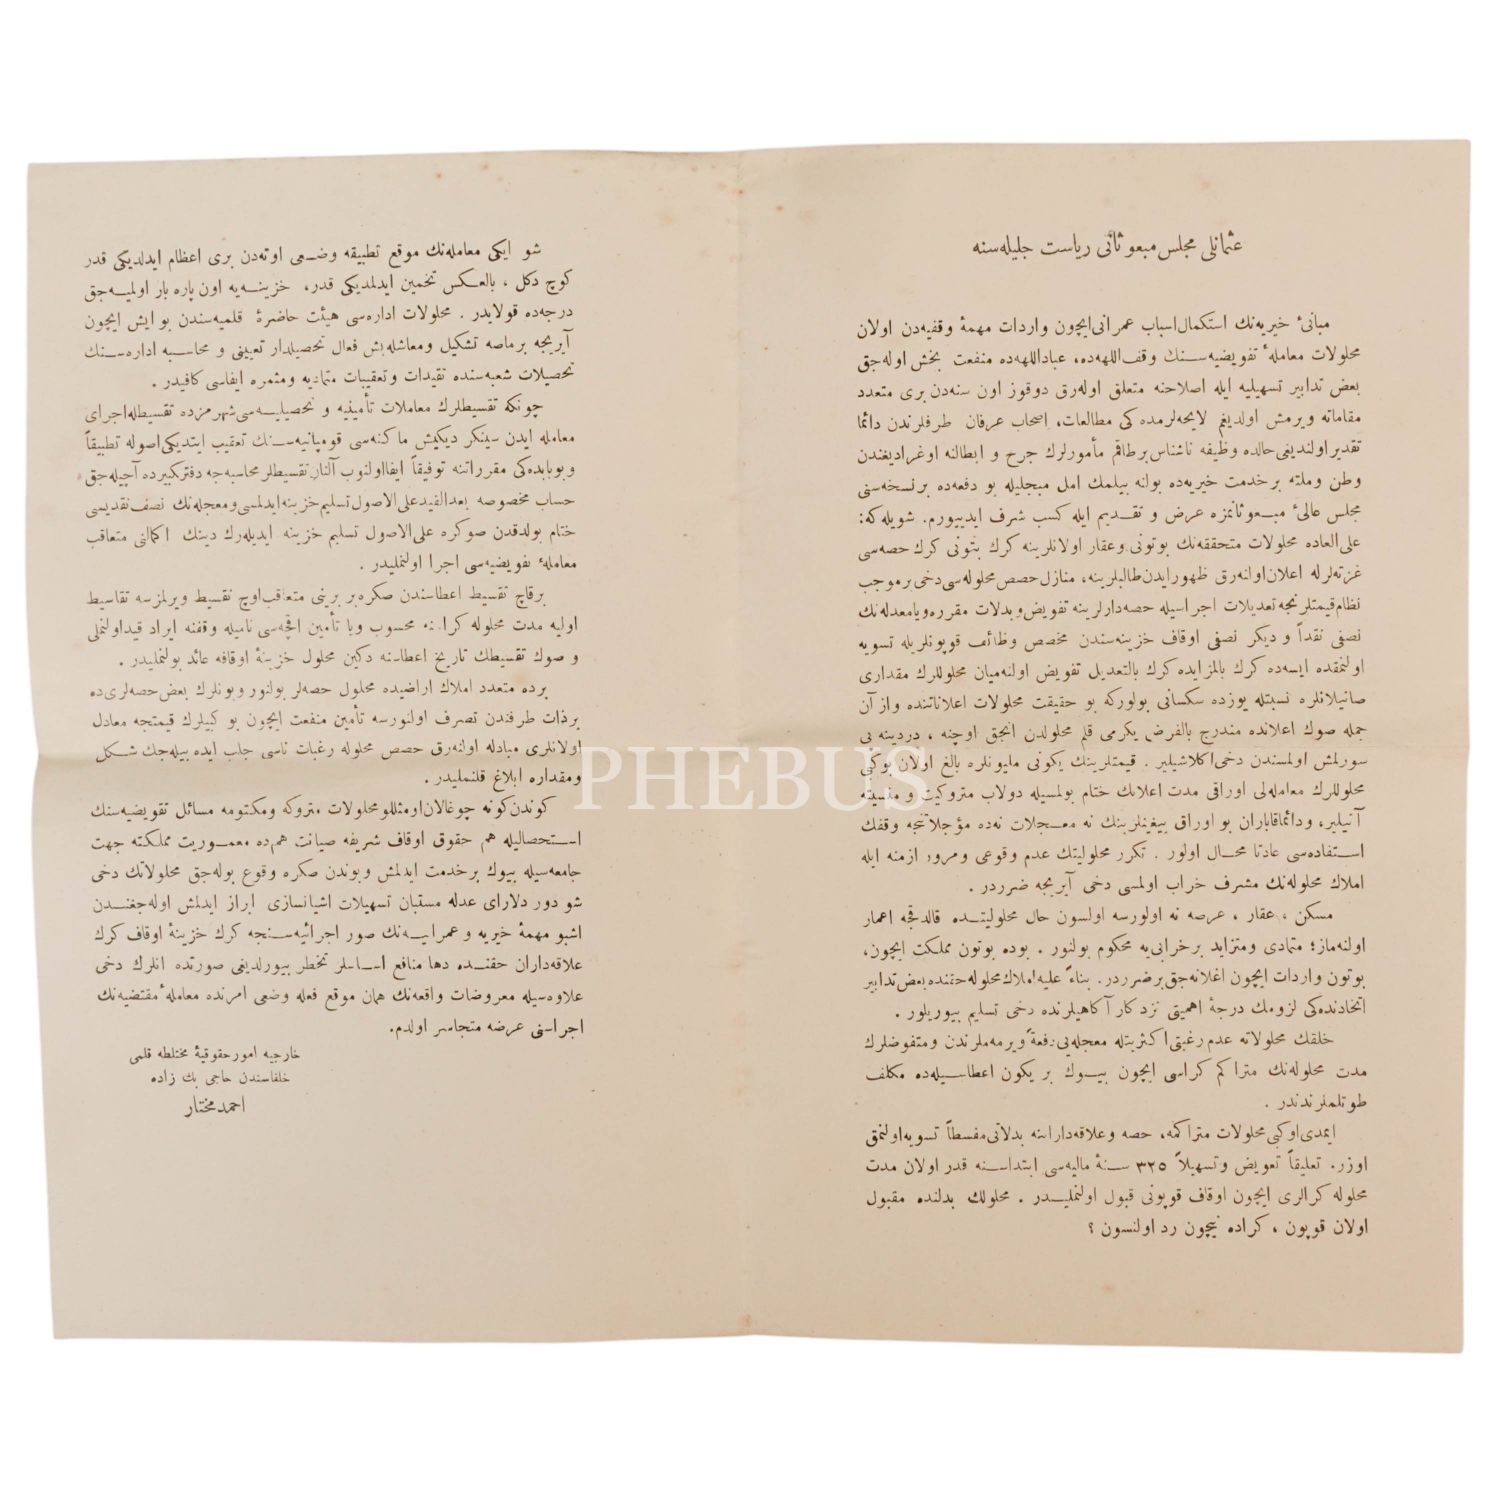 عثمانلی مجلس مبعوثانی ریاست جلیله‌سنه
مبانیٔ خیریه‌نك استكمال اسباب عمرانی ایچون واردات مهمهٔ وقفیه‌دن اولان
محلولات معاملهٔ تفویضیه‌سنك وقف اللهه‌ده، عباداللهه‌ده منفعت بخش اوله‌جق
بعض تدابیر تسهیلیه ایله اصلاحنه متعلق اوله‌رق دوقوز اون سنه‌دن بری متعدد
مقاماته ویرمش اولدیغم لایحه‌لرمده‌كی مطالعات، اصحاب عرفان طرفلرندن دائما
تقدیر اولندیغی حالده وظیفه ناشناس برطاقم مأمورلرك جرح و ابطالنه اوغرادیغندن
وطن وملته برخدمت خیریه‌ده بولنه بیلمك امل مبجلیله بو دفعه‌ده برنسخه‌سنی
مجلس عالیٔ مبعوثانمزه عرض و تقدیم ایله كسب شرف ایدییورم. شویله‌كه:
علی‌العاده محلولات متحققه‌نك بوتونی وعقار اولانلرینه كرك بتونی كرك حصه‌سی
غزته‌لرله اعلان اولنه‌رق ظهور ایدن طالبلرینه، منازل حصص محلوله‌سی دخی برموجب
نظام قیمتلرنجه تعدیلات اجراسیله حصه‌دارلرینه تفویض وبدلات مقرره ویا معدله‌نك
نصفی نقداً و دیكر نصفی اوقاف خزینه‌سندن مخصص وظائف قوپونلریله تسویه
اولنمقده ایسه‌ده كرك بالمزایده كرك بالتعدیل تفویض اولنه‌میان محلوللرك مقداری
صاتیلانلره نسبتله یوزده سكسانی بولوركه بو حقیقت محلولات اعلاناتنده واز آن
جمله صوك اعلانده مندرج بالفرض یكرمی قلم محلولدن انجق اوچنه ، دردینه پی
سورلمش اولمسندن دخی اكلاشیلیر . قیمتلرینك یكونی ملیونلره بالغ اولان بوكبی
محلوللرك معامله‌لی اوراقی مدت اعلانك ختام بولمسیله دولاب متروكیت و منسیته
آتیلیر، ودائما قاباران بو اوراق ییغینلرینك نه معجلات نه‌ده مؤجلاتنجه وقفك
استفاده‌سی عادتا محال اولور . تكرر محلولیتك عدم وقوعی ومرور ازمنه ایله
املاك محلوله‌نك مشرف خراب اولمسی دخی آیریجه ضرردر .
مسكن ، عقار ، عرصه نه اولورسه اولسون حال محلولیتده قالدقجه اعمار
اولنه‌ماز؛ متمادی ومتزاید برخرابی‌یه محكوم بولنور . بوده بوتون مملكت ایچون،
بوتون واردات ایچون اغلانه‌جق برضرردر. بناءً علیه املاك محلوله حقنده بعض تدابیر
اتخاذنده‌كی لزومك درجهٔ اهمیتی نزد كار آكاهیلرنده دخی تسلیم بیوریلور .
خلقك محلولاته عدم رغبتی اكثریتله معجله‌یی دفعةً ویرمه‌ملرندن ومتفوضلرك
مدت محلوله‌نك متراكم كراسی ایچون بیوك بر یكون اعطاسیله‌ده مكلف
طوتلملرندندر .
ایمدی اوكبی محلولات متراكمه، حصه وعلاقه‌دارانه بدلاتی مقسطاً تسویه اولنمق
اوزره تعلیقاً تعویض وتسهیلاً ٣٢٥ سنهٔ مالیه‌سی ابتداسنه قدر اولان مدت
محلوله كرالری ایچون اوقاف قوپونی قبول اولنملیدر . محلولك بدلنده مقبول
اولان قوپون ، كراده نیچون رد اولنسون ؟
شو ایكی معامله‌نك موقع تطبیقه وضعی اوته‌دن بری اعظام ایدلدیكی قدر
كوچ دكل ، بالعكس تخمین ایدلمدیكی قدر، خزینه‌یه اون پاره بار اولمیه‌جق
درجه‌ده قولایدر . محلولات اداره‌سی هیئت حاضرهٔ قلمیه‌سندن بو ایش ایچون
آیریجه برماصه تشكیل ومعاشله بش فعال تحصیلدار تعیینی و محاسبه اداره‌سنك
تحصیلات شعبه‌سنده تقیدات وتعقیبات متمادیه ومثمره ایفاسی كافیدر .
چونكه تقسیطلرك معاملات تأمینیه و تحصیلیه‌سی شهرمزده تقسیطله اجرای
معامله ایدن سینكر دیكیش ماكنه‌سی قومپانیه‌سنك تعقیب ایتدیكی اصوله تطبیقاً
وبوبابده‌كی مقرراتنه توفیقاً ایفا اولنوب آلنان تقسیطلر محاسبه‌جه دفتركبیرده آچیله‌جق
حساب مخصوصه بعدالقید علی‌الاصول تسلیم خزینه ایدلمسی ومعجله‌نك نصف نقدیسی
ختام بولدقدن صوكره علی‌الاصول تسلیم خزینه ایدیله‌رك دینك اكمالنی متعاقب
معاملهٔ تفویضیه‌سی اجرا اولنملیدر .
برقاچ تقسیط اعطاسندن صكره بر برینی متعاقب اوچ تقسیط ویرلمزسه تقاسیط
اولیه مدت محلوله كراسنه محسوب ویا تأمین اقچه‌سی نامیله وقفنه ایراد قید اولنملی
و صوك تقسیطك تاریخ اعطاسنه دكین محلول خزینهٔ اوقافه عائد بولنملیدر .
برده متعدد املاك اراضیده محلول حصه‌لر بولنور وبونلرك بعض حصه‌لری‌ده
برذات طرفندن تصرف اولنورسه تأمین منفعت ایچون بو كبیلرك قیمتجه معادل
اولانلری مبادله اولنه‌رق حصص محلوله رغبات ناسی جلب ایده بیله‌جك شكل
ومقداره ابلاغ قلنملیدر .
كوندن كونه چوغالان اومثللو محلولات متروكه ومكتومه مسائل تفویضیه‌سنك
استحصالیله هم حقوق اوقاف شریفه صیانت هم‌ده معموریت مملكته جهت
جامعه‌سیله بیوك برخدمت ایدلمش وبوندن صكره وقوع بوله‌جق محلولاتك دخی
شو دور دلارای عدله مستبان تسهیلات اشیانسازی ابراز ایدلمش اوله‌جغندن
اشبو مهمهٔ خیریه و عمرانیه‌نك صور اجرائیه‌سنجه كرك خزینهٔ اوقاف كرك
علاقه‌داران حقنده دها منافع اساسلر تخطر بیورلدیغی صورتده انلرك دخی
علاوه‌سیله معروضات واقعه‌نك همان موقع فعله وضعی امرنده معاملهٔ مقتضیه‌نك
اجراسنی عرضه متجاسر اولدم.
خارجیه امور حقوقیهٔ مختلطه قلمی
خلفاسندن حاجی بك زاده
احمد مختار
PHEBUS